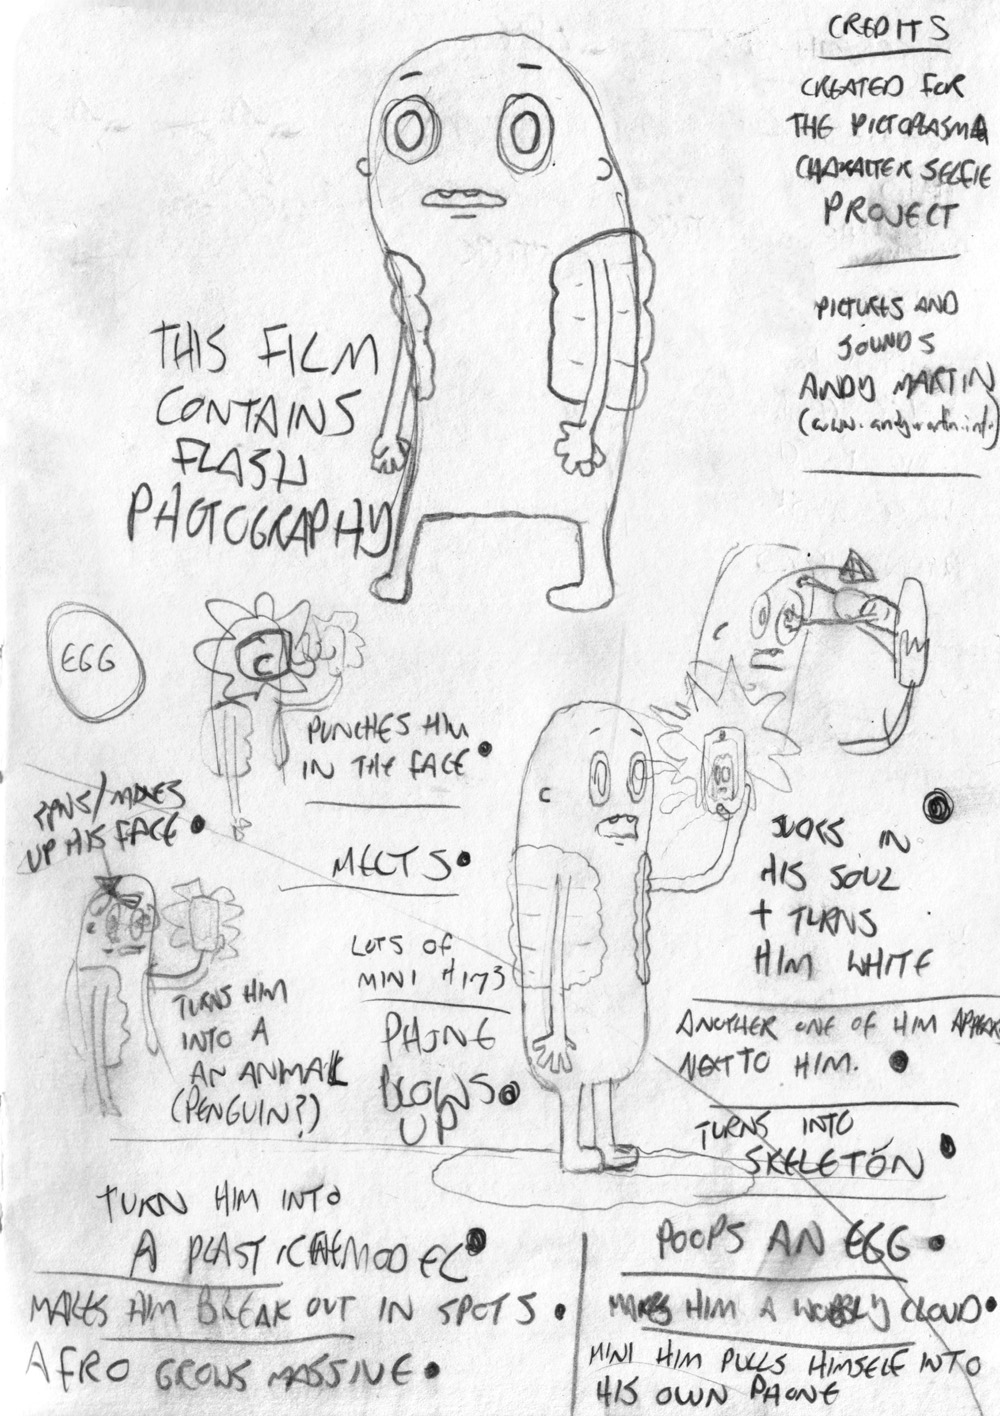 CREDITS
CREATED FOR
THE PICTOPLASMA
CHARACTER SELFIE
PROJECT
PICTURES AND
SOUNDS
ANDY MARTIN
(www.andymartin.info)
THIS FILM
CONTAINS
FLASH
PHOTOGRAPHY
EGG
C
PUNCHES HIM
IN THE FACE
MAKES
UP HIS FACE
MELTS
SUCKS IN
HIS SOUL
+ TURNS
HIM WHITE
LOTS OF
MINI HIMS
TURNS HIM
INTO A
AN ANIMAL
(PENGUIN?)
PHONE
BLOWS
UP
ANOTHER ONE OF HIM APPEARS
NEXT TO HIM.
TURNS INTO
SKELETON
TURN HIM INTO
A PLASTICINE MODEL
MAKES HIM BREAK OUT IN SPOTS
AFRO GROWS MASSIVE
POOPS AN EGG
MAKES HIM A WOBBLY CLOUD
MINI HIM PULLS HIMSELF INTO
HIS OWN PHONE